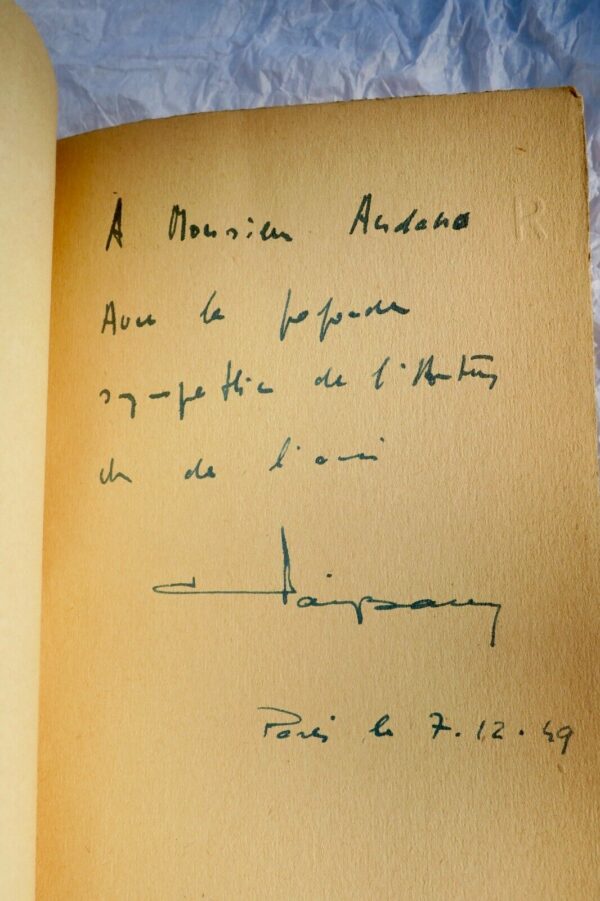 A Monsieur
R
Avec la profonde
sympathie de l'
et de l'ami
Paris le 7.12.49